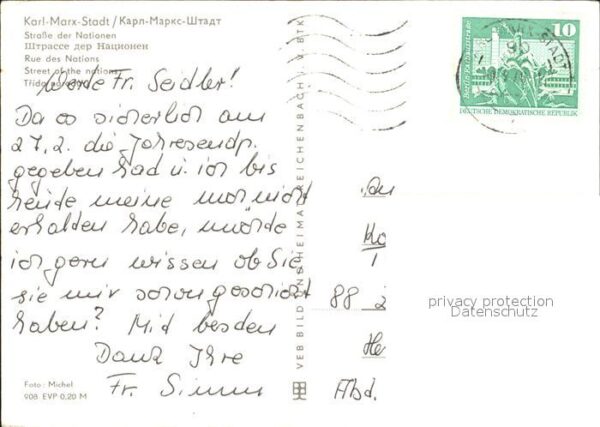 Karl-Marx-Stadt / Карл-Маркс-Штадт
Straße der Nationen
Штрассе дер Национен
Rue des Nations
Street of the nations
Werde Fr. Seidler!
Da es sicherlich am
27.2. die Jahresendp.
gegeben had u. ich bis
heute meine nur nicht
erhalten habe, würde
ich gern wissen ob Sie
sie mir schon geschickt
haben? Mid besden
Danz Ihre
Fr. Simm
Foto: Michel
908 EVP 0,20 M
VEB BILD UND HEIMAT REICHENBACH I. V. BTK
10
DEUTSCHE DEMOKRATISCHE REPUBLIK
An
88
He
Abd.
privacy protection
Datenschutz